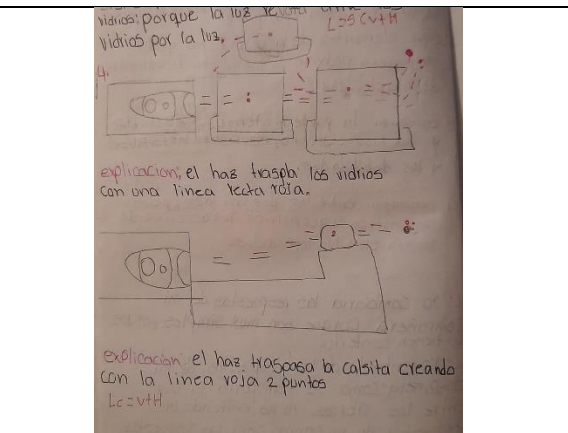 vidrios; porque la luz
vidrios por la luz.
4.
explicacion; el haz traspla los vidrios
con una linea recta roja.
explicacion: el haz traspasa la calsita creando
con la linea roja 2 puntos
Lc=v+H